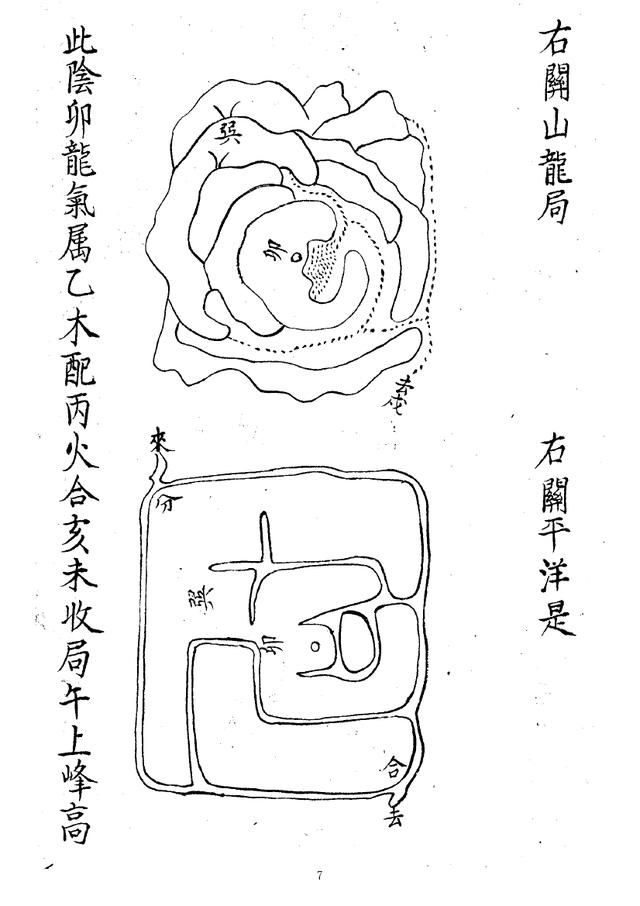 右關山龍局
右關平洋是
巽
卯
來
分
巽
卯
合
去
此陰卯龍氣属乙木配丙火合亥未收局午上峰高
7